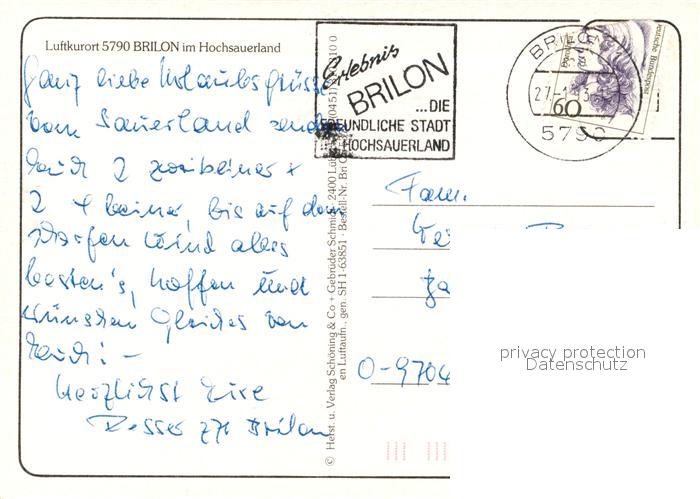 Luftkurort 5790 BRILON im Hochsauerland
Ganz liebe Urlaubsgrüsse
vom Sauerland senden
Euch 2 zweibeiner +
2 4 beiner, bis auf dem
scharfen Wind alles
besten's, hoffen und
wünschen Gleiches von
Euch! –
Herzlichst Eire
zzt Brilon
Erlebnis
BRILON
...DIE
FREUNDLICHE STADT
HOCHSAUERLAND
BRILON
27.-1
5790
60
Deutsche Bundespost
Fam.
O-9704
© Herst. u. Verlag Schöning & Co + Gebrüder Schmidt, 2400
en Luftaufn., gen. SH 1-63851 · Bestell-Nr. Bri
privacy protection
Datenschutz